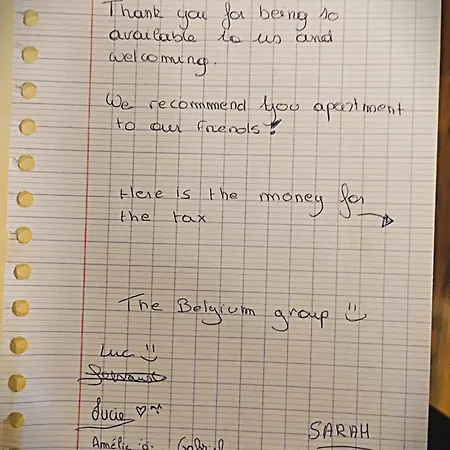 Thank you for being so
available to us and
welcoming.
We recommend you apartment
to our friends!
Here is the money for
the tax
The Belgium group
Luca
Lucie
SARAH
Amélie